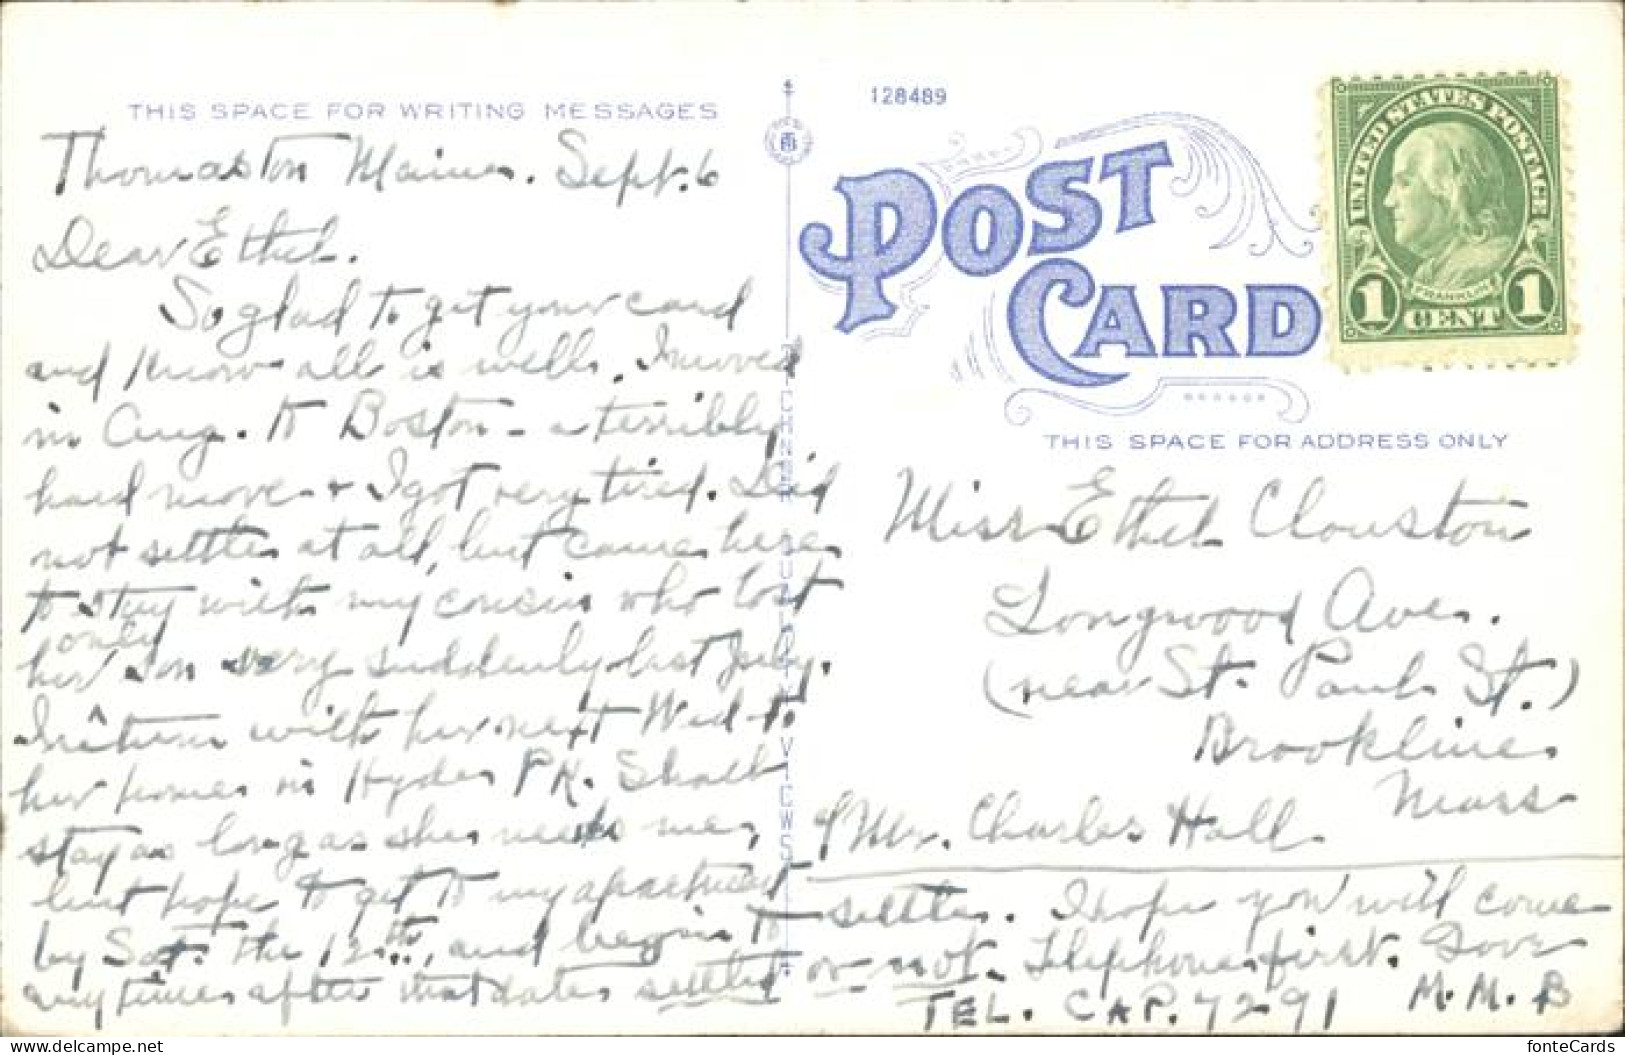 THIS SPACE FOR WRITING MESSAGES
Thomaston Maine. Sept. 6
Dear Ethel.
So glad to get your card
and know all is well. I moved
in Aug. to Boston - a terribly
hard move - & I got very tired. Did
not settle at all, but came here
to stay with my cousin who lost
only
her son very suddenly last July.
I return with her next Wed to
her home in Hyde PK. Shall
stay as long as she needs me,
but hope to get to my apartment
by Sat. the 12th, and begin to
any time after that date settled
128489
POST CARD
UNITED STATES POSTAGE
FRANKLIN
1 CENT 1
THIS SPACE FOR ADDRESS ONLY
TICHNOR QUALITY VIEWS
Miss Ethel Clouston
Longwood Ave.
(near St. Paul St.)
Brookline
Mass
c/o Mr. Charles Hall
settle. I hope you will come
or not. Telephone first. Love
TEL. CAP. 7291 M.M.B
fonteCards